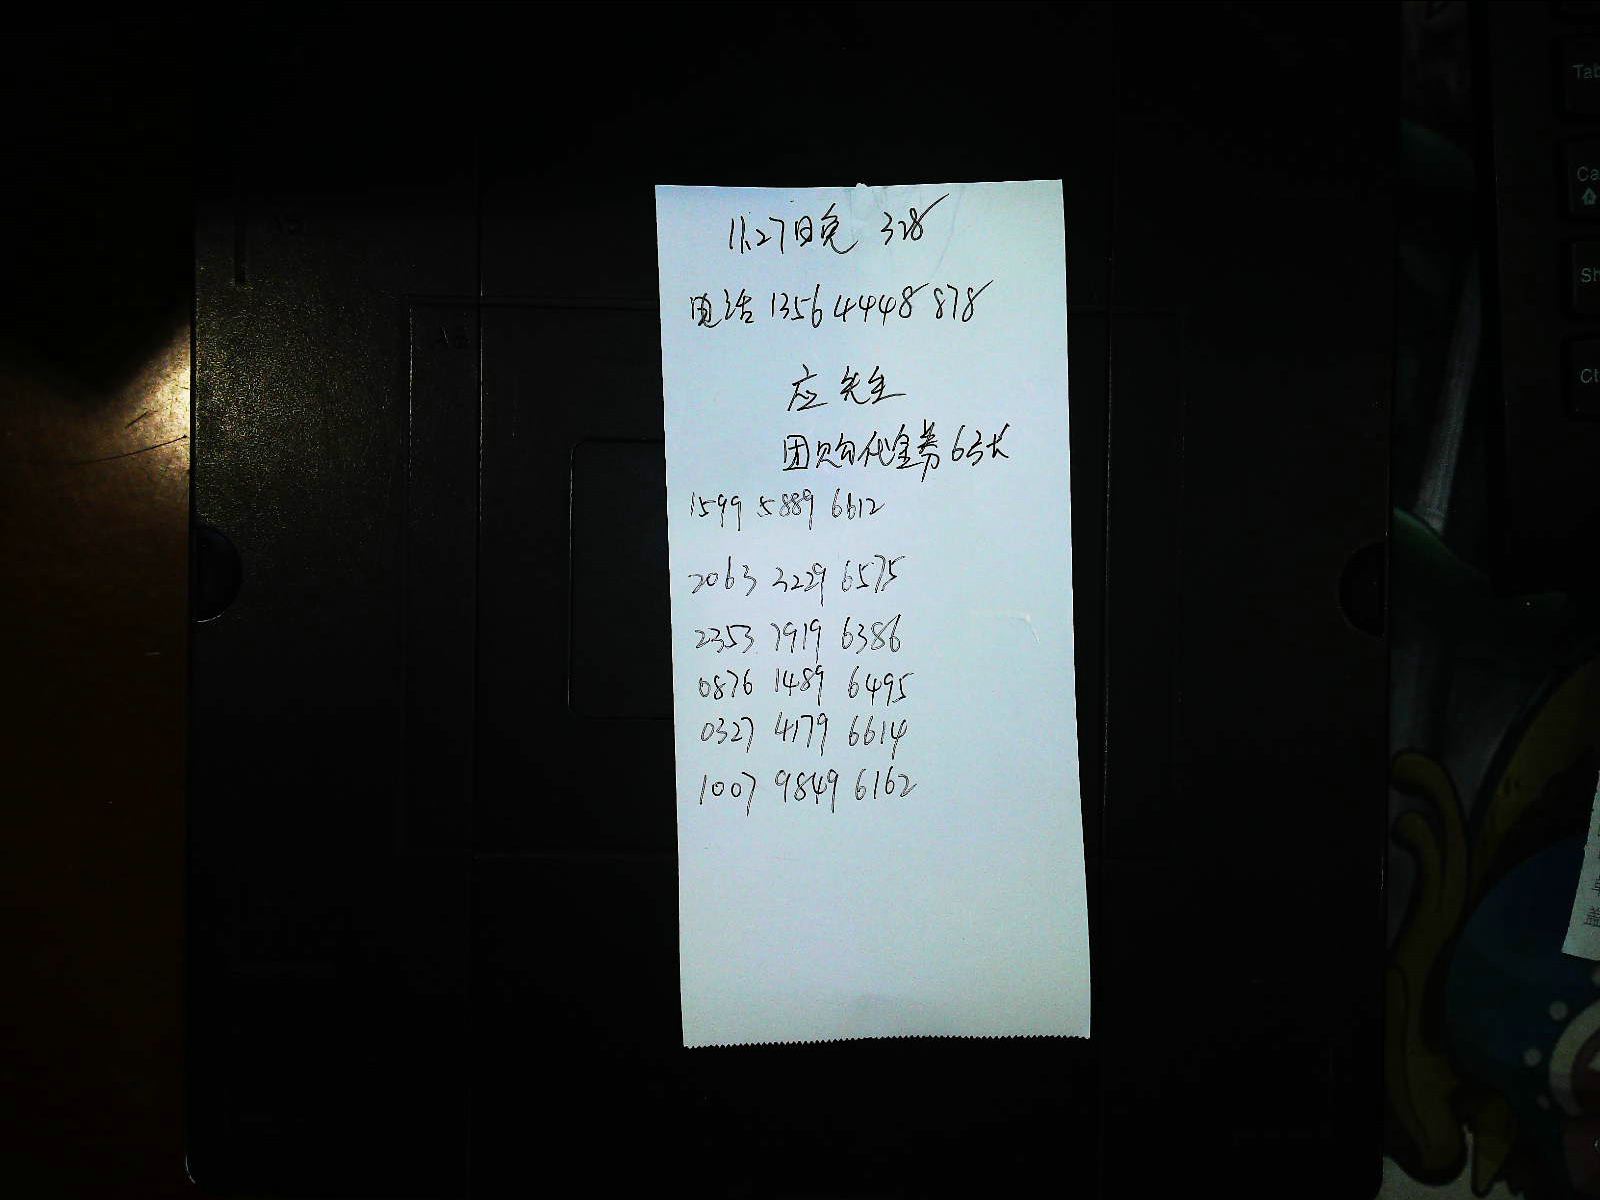 11.27日晚 328
电话 1356 4448 878
应先生
团购代金券6张
1599 5889 6612
2063 3229 6575
2353 7919 6386
0876 1489 6495
0327 4179 6614
1007 9849 6162
Tab
Ca
Sh
盖